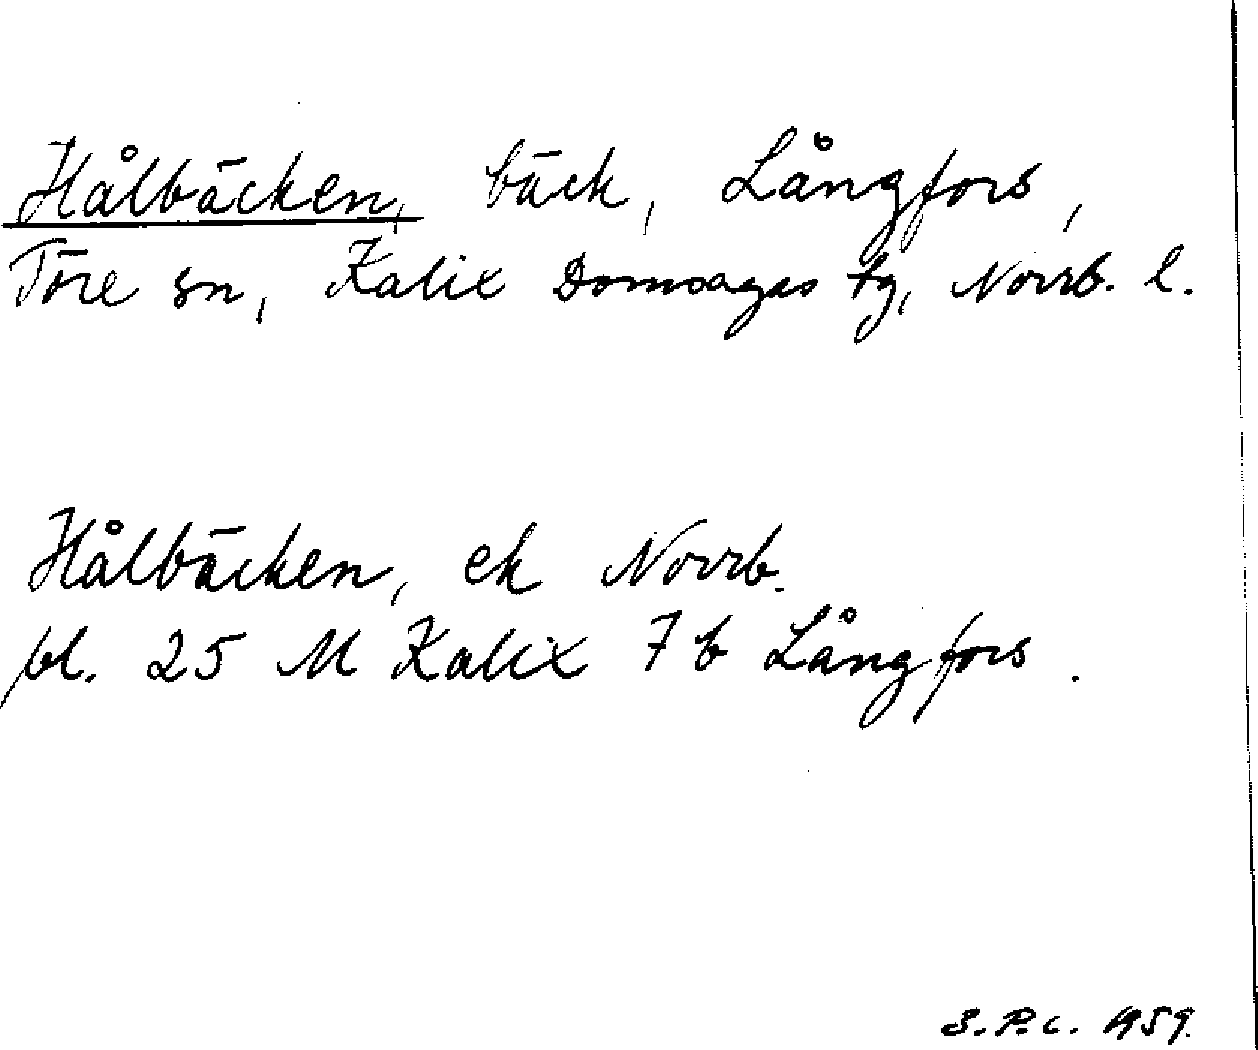 Hålbäcken, bäck, Långfors,
Töre sn, Kalix Domsagas tg, Norrb. l.
Hålbäcken, ek Norrb.
bl. 25 M Kalix 7 b Långfors.
S.P.C. 1959.